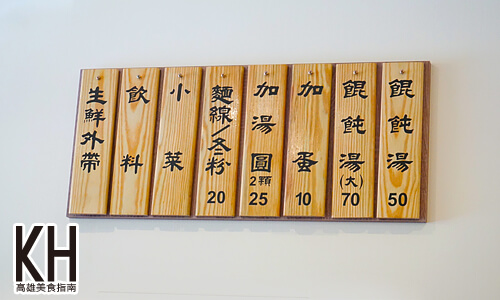 餛飩湯 50
餛飩湯(大) 70
加蛋 10
加湯圓2顆 25
麵線/冬粉 20
小菜
飲料
生鮮外帶
KH
高雄美食指南